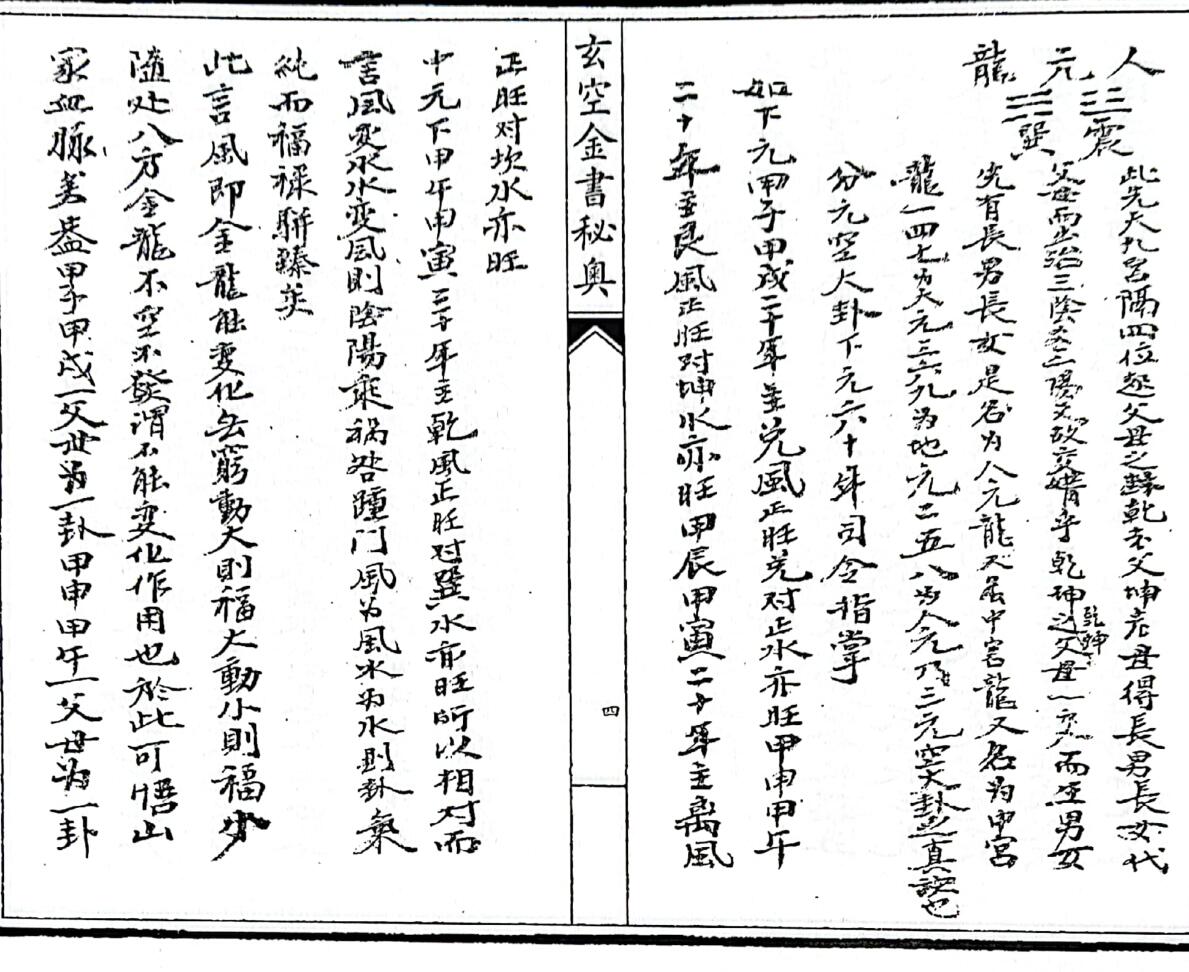 人元龍
☳震
☴巽
此先天九宮隔四位起父母之彝乾老父坤老母得長男長女代
父母而生治三陰爻三陽爻故交媾乎乾坤之父母一交而生男女
乾坤
先有長男長女是名為人元龍天岳中宮龍又名為中宮
龍一四七为天元三六九为地元二五八为人元乃三元空大卦之真訣也
分元空大卦下元六十年司令指掌
如下元甲子甲戌二十年主兑風正旺兑对正水亦旺甲申甲午
二十年主艮風正旺对坤水亦旺甲辰甲寅二十年主离風
玄空金書秘奥
四
正旺对坎水亦旺
中元下甲午甲寅三十年主乾風正旺对巽水亦旺所以相对而
言風变水水变風則陰陽乘禍咎踵门風为風水为水則卦氣
純而福禄駢臻矣
此言風即金龍能变化无窮動大則福大動小則福少
隨处八方金龍不空不發謂不能变化作用也於此可悟山
家血脉矣蓋甲子甲戌一父母为一卦甲申甲午一父母为一卦